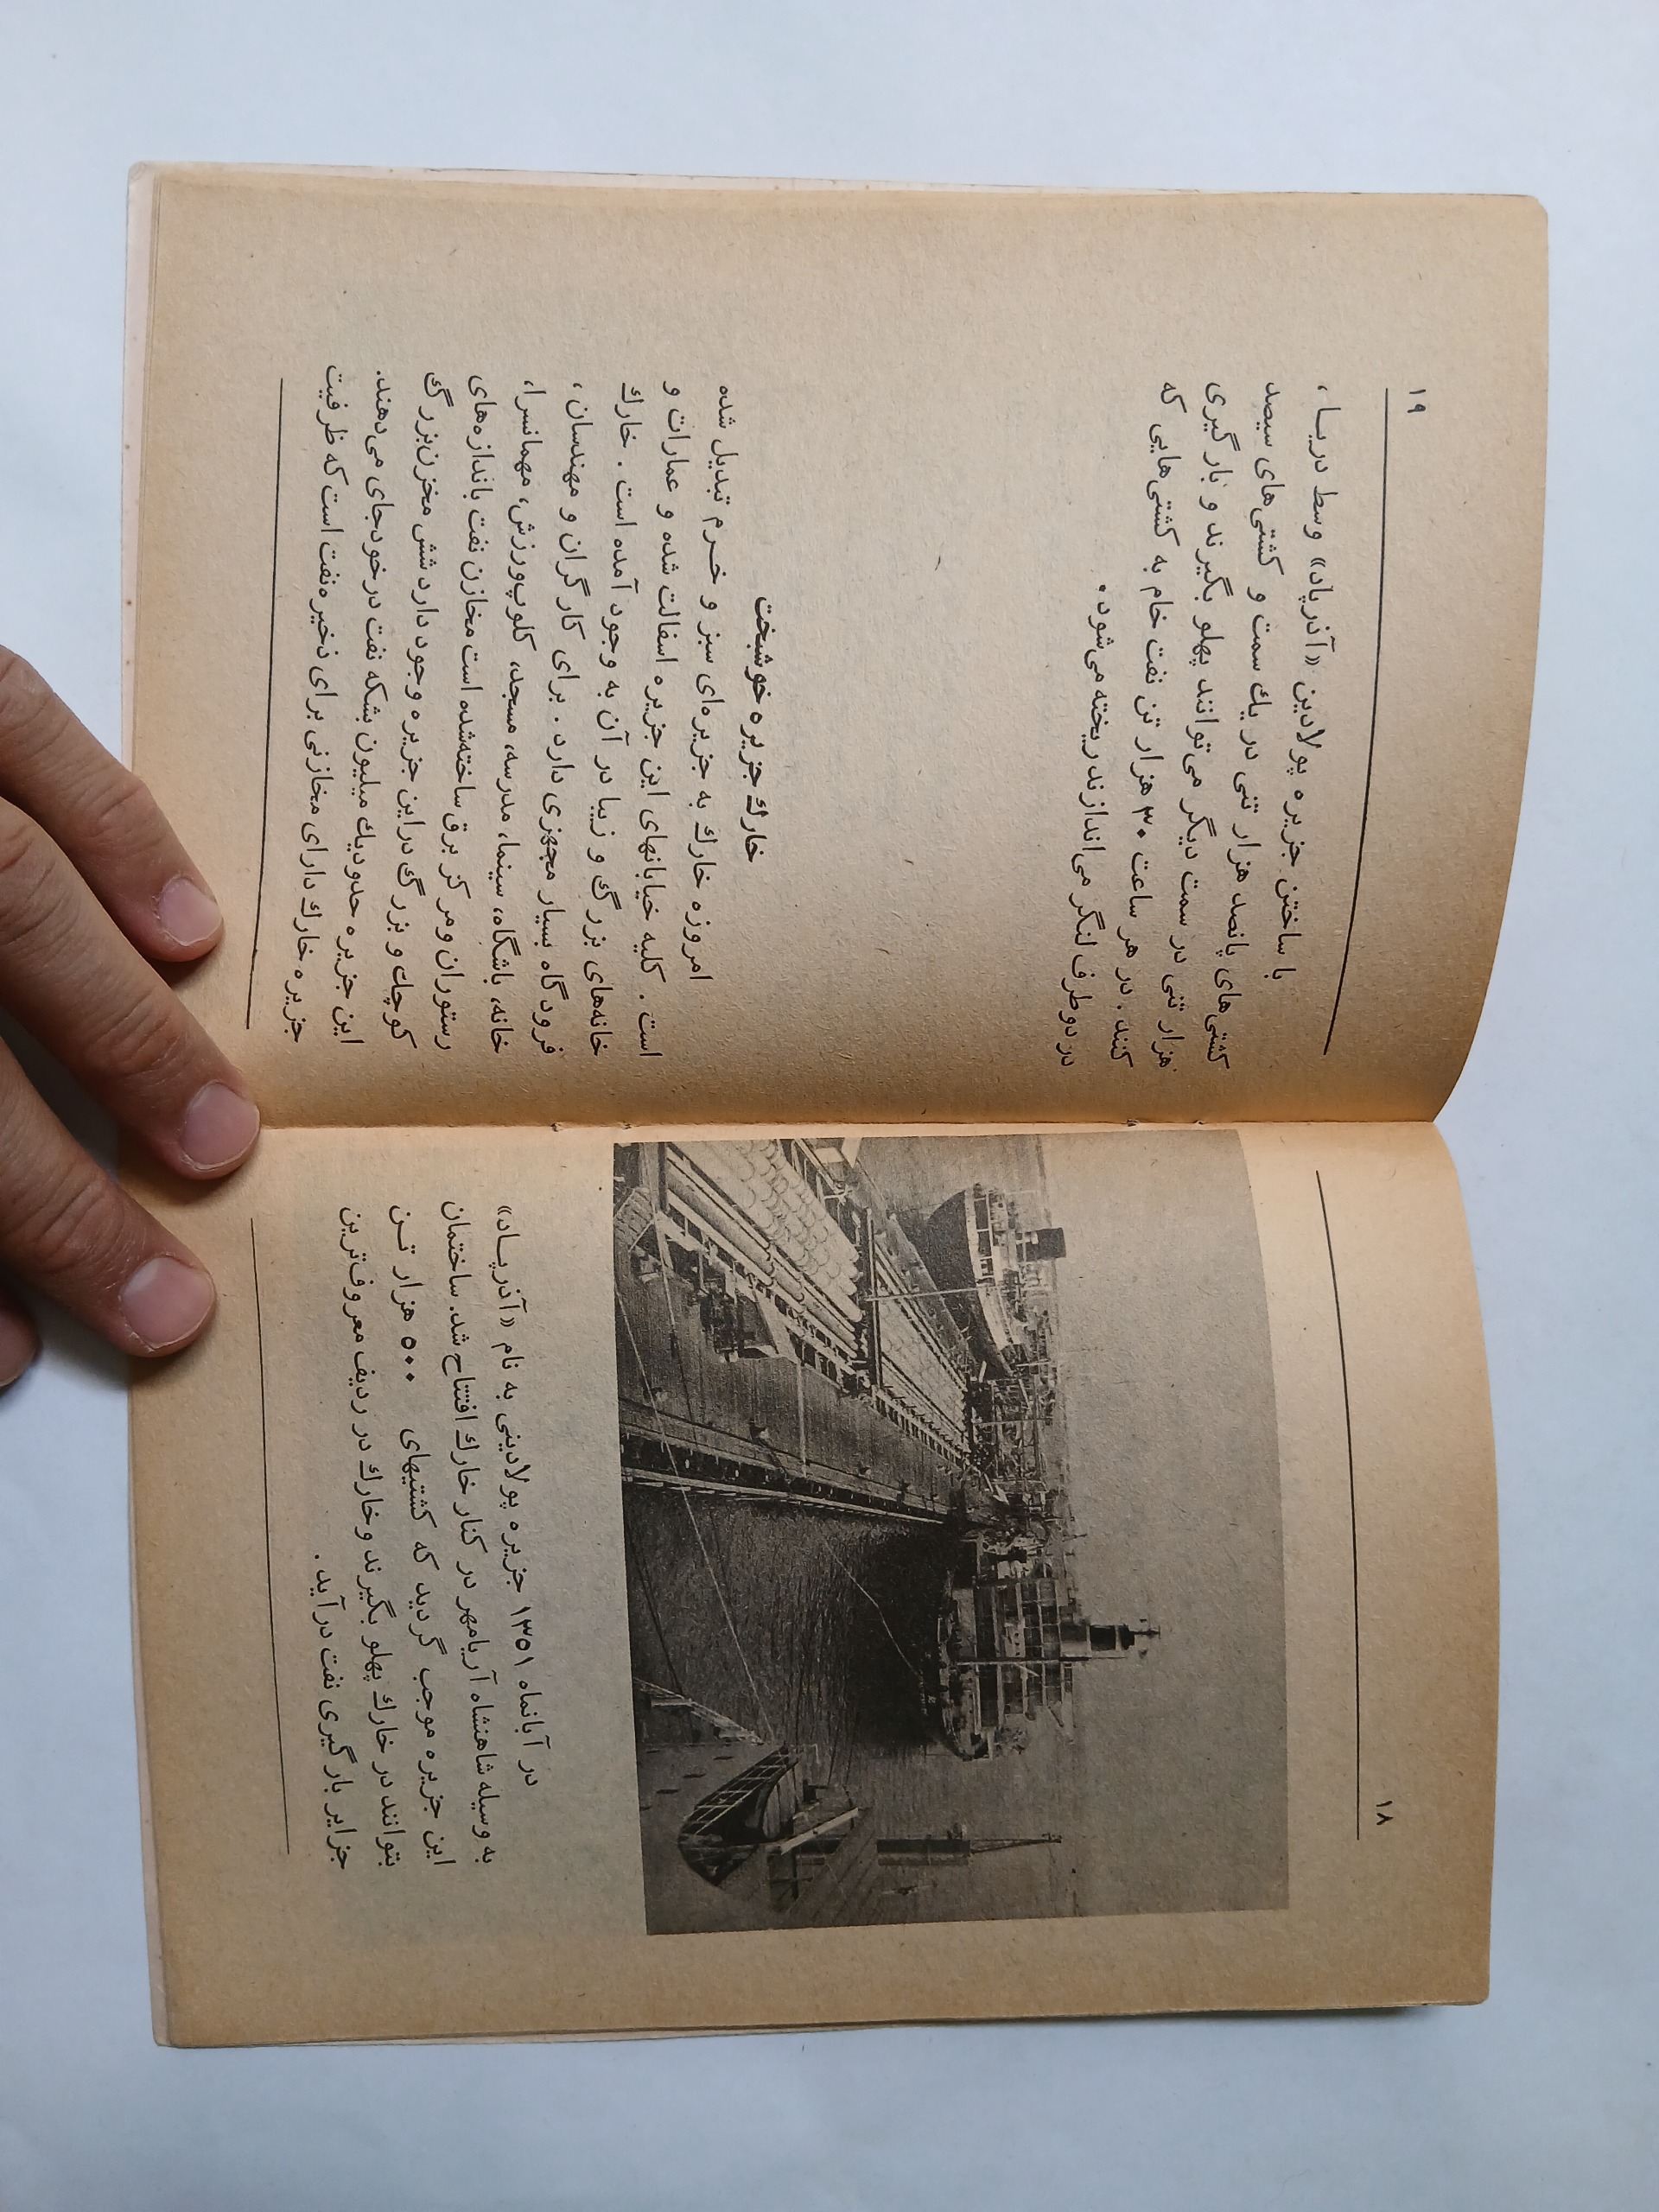 ۱۸
در آبانماه ۱۳۵۱ جزیره پولادینی به نام «آذرپـاد»
به وسیله شاهنشاه آریامهر در کنار خارك افتتاح شد. ساختمان
این جزیره موجب گردید که کشتیهای ۵۰۰ هزار تـن
بتوانند در خارك پهلو بگیرند و خارك در ردیف معروف‌ترین
جزایر بارگیری نفت درآید.
۱۹
با ساختن جزیره پولادین «آذرپاد» وسط دریـا،
کشتی‌های پانصد هزار تنی در یك سمت و کشتی‌های سیصد
هزار تنی در سمت دیگر می‌توانند پهلو بگیرند و بارگیری
کنند. در هر ساعت ۳۰ هزار تن نفت خام به کشتی‌هایی که
در دو طرف لنگر می‌اندازند ریخته می‌شود.
خارك جزیره خوشبخت
امروزه خارك به جزیره‌ای سبز و خـرم تبدیل شده
است. کلیه خیابانهای این جزیره اسفالت شده و عمارات و
خانه‌های بزرگ و زیبا در آن به وجود آمده است. خارك
فرودگاه بسیار مجهزی دارد. برای کارگران و مهندسان،
خانه، باشگاه، سینما، مدرسه، مسجد، کلوپ‌ورزش، مهمانسرا،
رستوران ومرکز برق ساخته‌شده است مخازن نفت باندازه‌های
کوچك و بزرگ دراین جزیره وجود دارد شش مخزن‌بزرگ
این جزیره حدودیك میلیون بشکه نفت درخودجای می‌دهند.
جزیره خارك دارای مخازنی برای ذخیره‌نفت است که ظرفیت